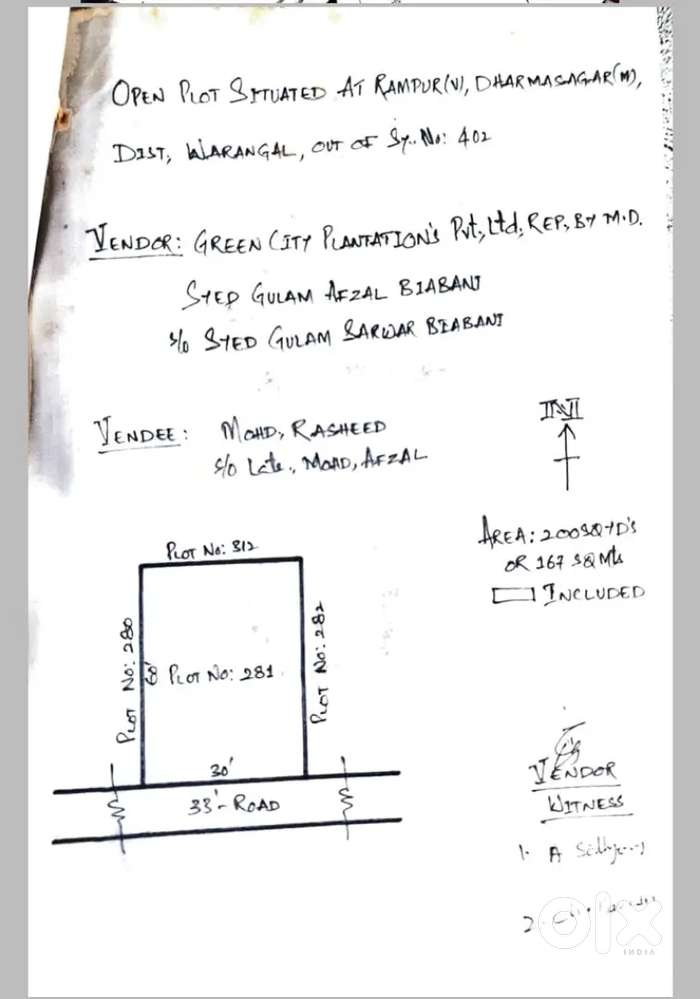 OPEN PLOT SITUATED AT RAMPUR(V), DHARMASAGAR(M),
DIST, WARANGAL, OUT OF Sy. No: 402
VENDOR: GREEN CITY PLANTATION'S Pvt, Ltd, REP, BY M.D.
SYED GULAM AFZAL BIABANI
S/o SYED GULAM SARWAR BIABANI
VENDEE: MOHD, RASHEED
S/o Late., MOHD, AFZAL
N
AREA: 200 SQ YD'S
OR 167 SQ Mts
INCLUDED
PLOT No: 312
PLOT No: 280
60'
PLOT No: 281
PLOT No: 282
30'
33'-ROAD
VENDOR
WITNESS
1. A
2.
olx
INDIA